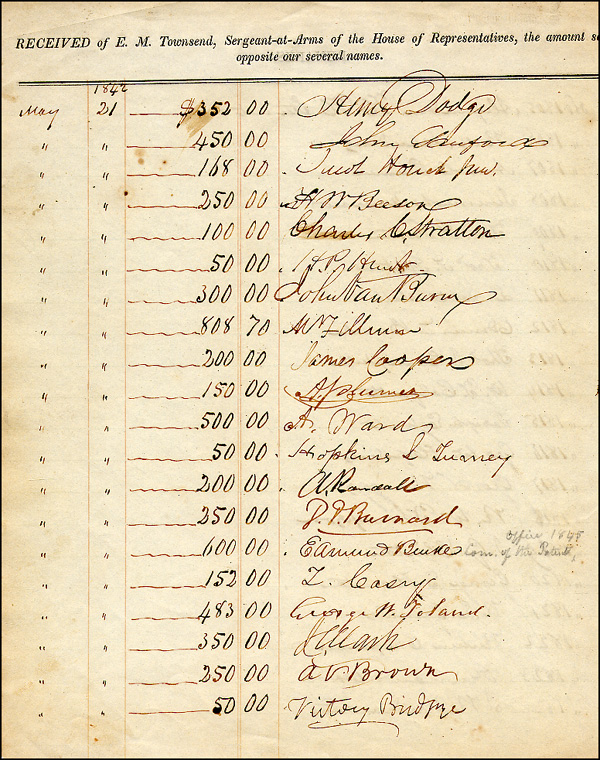 RECEIVED of E. M. Townsend, Sergeant-at-Arms of the House of Representatives, the amount s
opposite our several names.
1842
May 21 $352 00 Henry Dodge
" " 450 00 John
" " 168 00 Jacob Houck Jun.
" " 250 00 H W Beeson
" " 100 00 Charles C. Stratton
" " 50 00
" " 300 00 John Van Buren
" " 808 70 M Fillmore
" " 200 00 James Cooper
" " 150 00
" " 500 00 A. Ward
" " 50 00 Hopkins L Turney
" " 200 00 A. Randall
" " 250 00 D. D. Barnard
Office 1845
" " 600 00 Edmund Burke Com. of the Patent
" " 152 00 Z. Casey
" " 483 00 George W. Toland.
" " 350 00
" " 250 00 A V. Brown
" " 50 00 Victory Birdseye